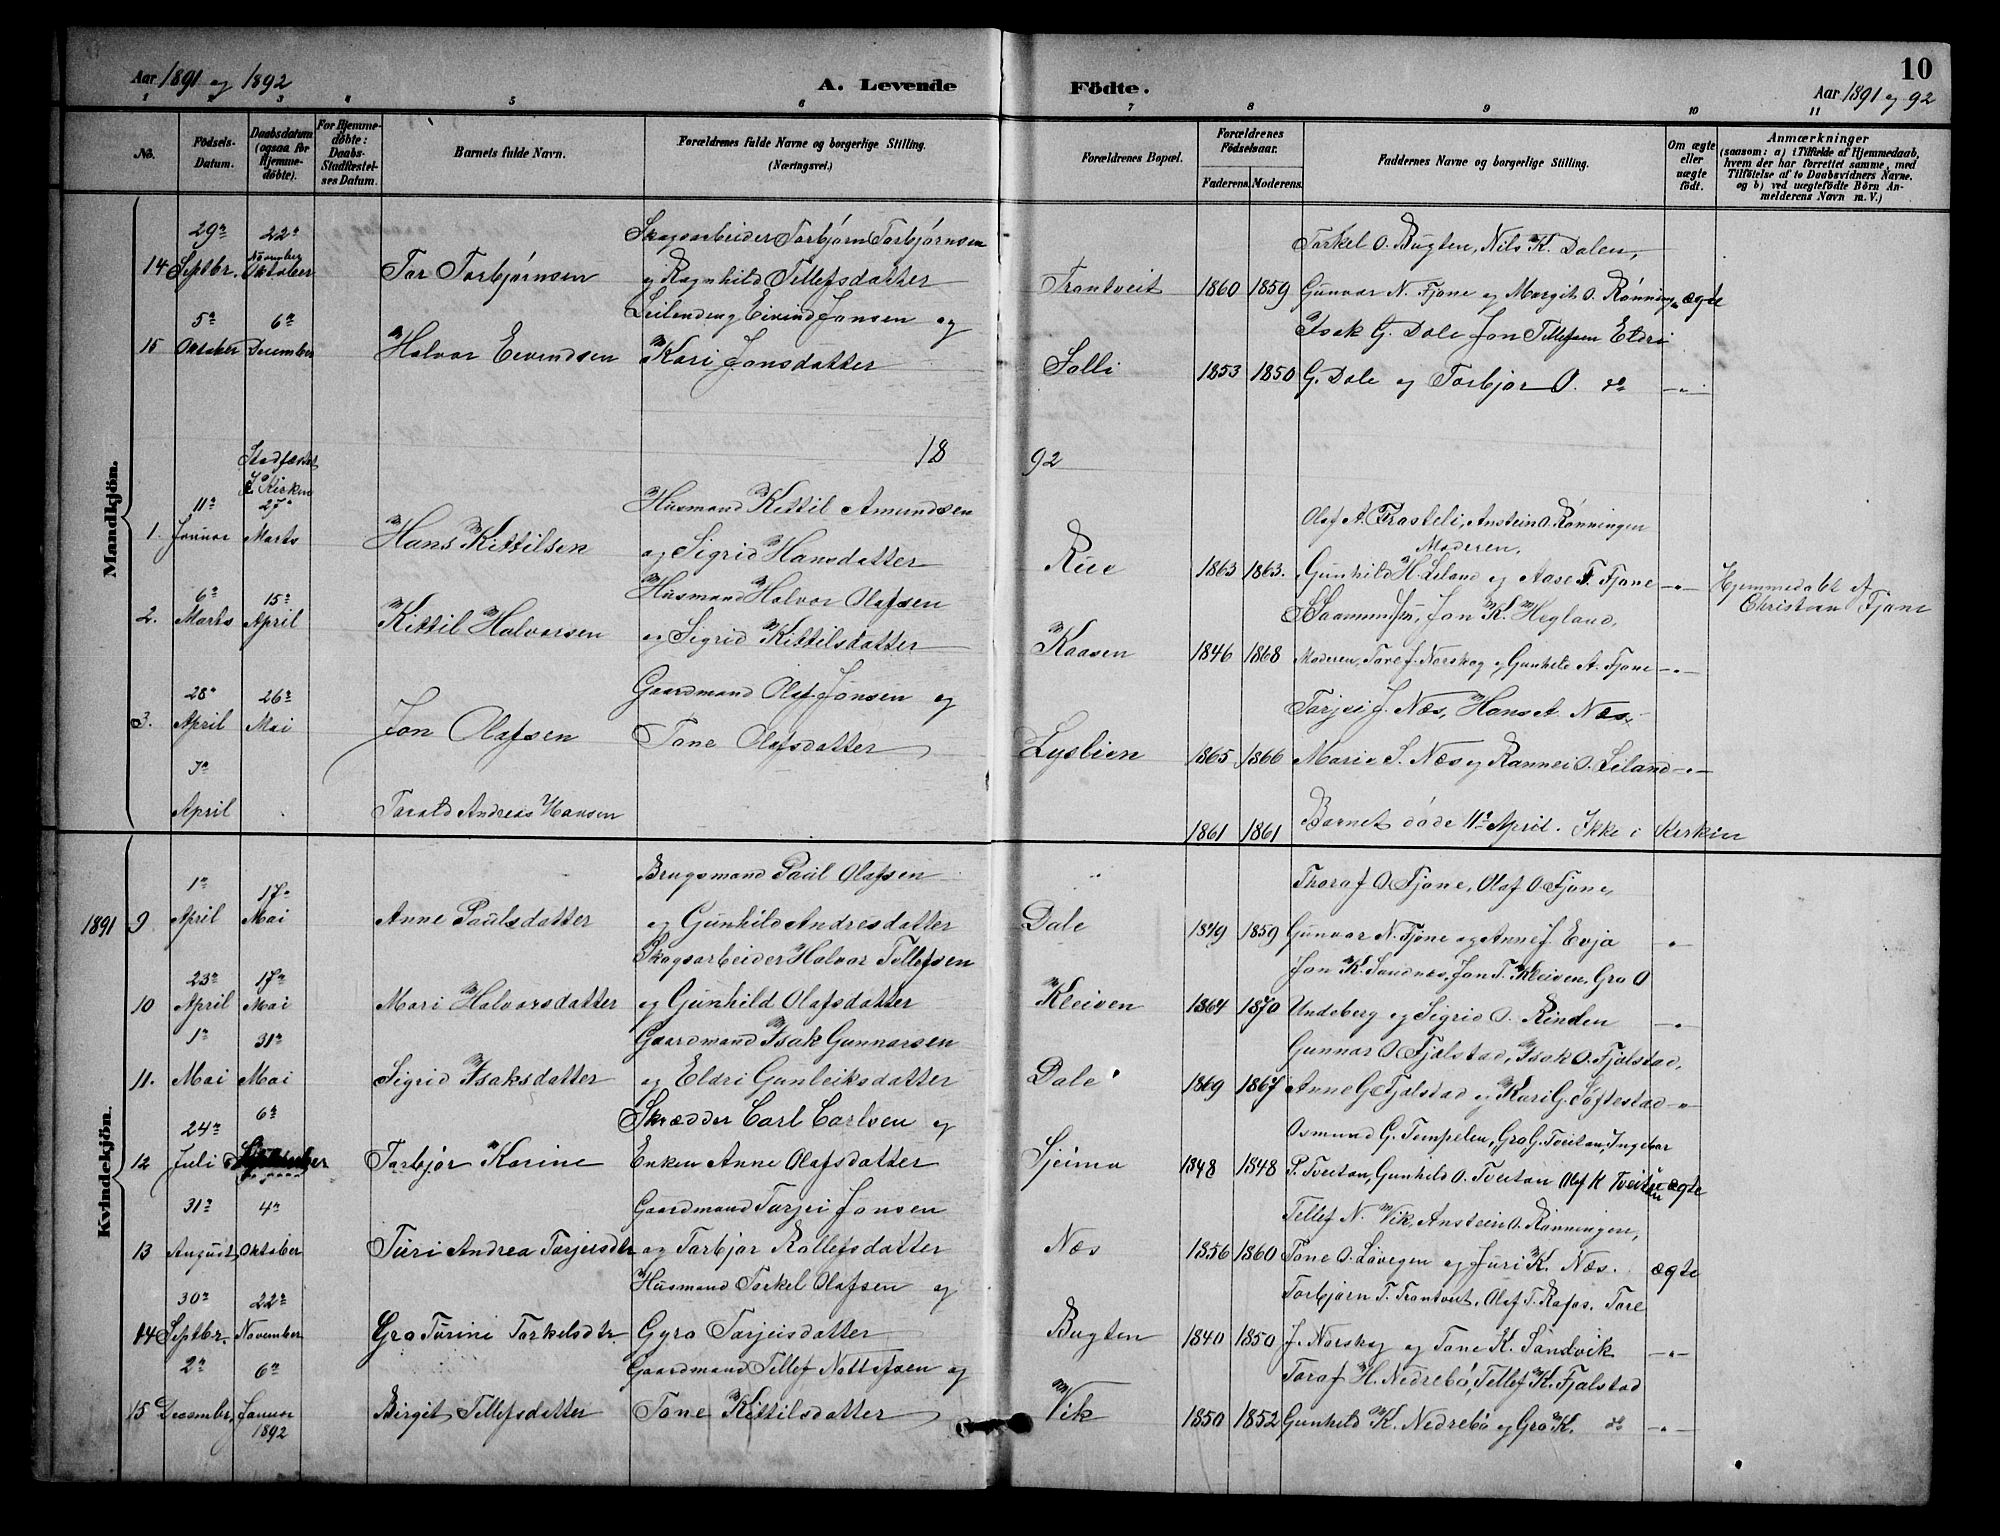 10
Aar 1891 og 1892 A. Levende Födte. Aar 1891 og 92
1 2 3 4 5 6 7 8 9 10 11
No.
Födsels-
Datum.
Daabsdatum
(ogsaa for
Hjemme-
döbte).
For Hjemme-
döbte:
Daabs-
Stadfæstel-
ses Datum.
Barnets fulde Navn.
Forældrenes fulde Navne og borgerlige Stilling.
(Næringsvei.)
Forældrenes Bopæl.
Forældrenes
Födselsaar.
Faderens. Moderens.
Faddernes Navne og borgerlige Stilling.
Om ægte
eller
uægte
födt.
Anmærkninger
(saasom: a) i Tilfælde af Hjemmedaab,
hvem der har forrettet samme, med
Tilföielse af to Daabsvidners Navne.
og b) ved uægtefödte Börn An-
melderens Navn m. V.)
Mandkjön.
29de 22de Skogsarbeider Torbjörn Torbjörnsen Torkel O. Bugten, Nils K. Dalen,
14 Septbr. Novembg Oktober Tor Torbjørnsen og Ragnhild Tellefsdatter Trontveit 1860 1859 Gunvor N. Fjone og Margit O. Rønning ægte
5te 6te Leilending Eivind Jonsen og Isak G. Dale Jon Tellefsen Eldri
15 Oktober December Halvor Eevindsen Kari Jonsdatter Solli 1853 1850 G. Dale og Torbjør O. do -"-
1892
Stadfæstet
I Kirken
11te 27de Husmand Kittil Amundsen Olaf A. Frosteli, Anstein O. Rønningen
1. Januar Marts Hans Kittilsen og Sigrid Hansdatter Rue 1863 1863. Moderen, Gunhild H. Leland og Aase F. Fjone -"- Hjemmedøbt af
6te 15de Husmand Halvor Olafsen Jon K. Hegland, Christian Fjone
2. Marts April Kittil Halvorsen og Sigrid Kittilsdatter Kaasen 1846 1868 Moderen, Tore J. Norskog og Gunhild A. Fjone -"-
28de 26de Gaardmand Olaf Jonsen og Torjei J. Næs, Hans A. Næs,
3. April Mai Jon Olafsen Tone Olafsdatter Lyslien 1865 1866 Marie S. Næs og Rannei O. Leland -"-
7de
April Torald Andreas Hansen 1861 1861 Barnet døde 11te April. Ikke i Kirken
Kvindekjön.
1ste 17de Brugsmand Paul Olafsen Thoraf O. Fjone, Olaf O. Fjone,
1891 9 April Mai Anne Paulsdatter og Gunhild Andresdatter Dale 1849 1859 Gunvor N. Fjone og Anne J. Evja "
23de 17de Skogsarbeider Halvor Tellefsen Jon K. Sandnes, Jon T. Kleiven, Gro O
10 April Mai Mari Halvorsdatter og Gunhild Olafsdatter Kleiven 1864 1870 Undeberg og Sigrid O. Rinden -"-
1ste 31te Gaardmand Isak Gunnarsen Gunnar O. Fjalstad, Isak O. Fjalstad,
11. Mai Mai Sigrid Isaksdatter og Eldri Gunleiksdatter Dale 1869 1867 Anne G. Fjalstad og Kari G. Søftestad -"-
24de 6te Skrædder Carl Carlsen og Osmund G. Tempelen, Gro G. Tveitan, Ingebor
12 Juli Torbjør Karine Enken Anne Olafsdatter Sjeimo 1848 1848 P. Tveitan, Gunhild O. Tveitan Olaf K Tveitan ægte
31te 4de Gaardmand Torjei Jonsen Tellef N. Vik, Anstein O. Rønningen,
13 August Oktober Turi Andrea Torjeisdtr og Torbjør Rollefsdatter Næs 1856 1860 Tone O. Løvegen og Juri K. Næs. ægte
30te 22de Husmand Torkel Olafsen og Torbjørn T. Trontveit, Olaf T. Rafos. Tore
14 Septbr. November Gro Turine Torkelsdtr. Gyro Torjeisdatter Bugten 1840 1850 J. Norskog og Tone K. Sandvik -"-
2de 6te Gaardmand Tellef Nottofsen og Toraf H. Nedrebø, Tellef K. Fjalstad
15 December, Januar Birgit Tellefsdatter Tone Kittilsdatter Vik 1850 1852 Gunhild K. Nedrebø og Gro K. do -"-
1892